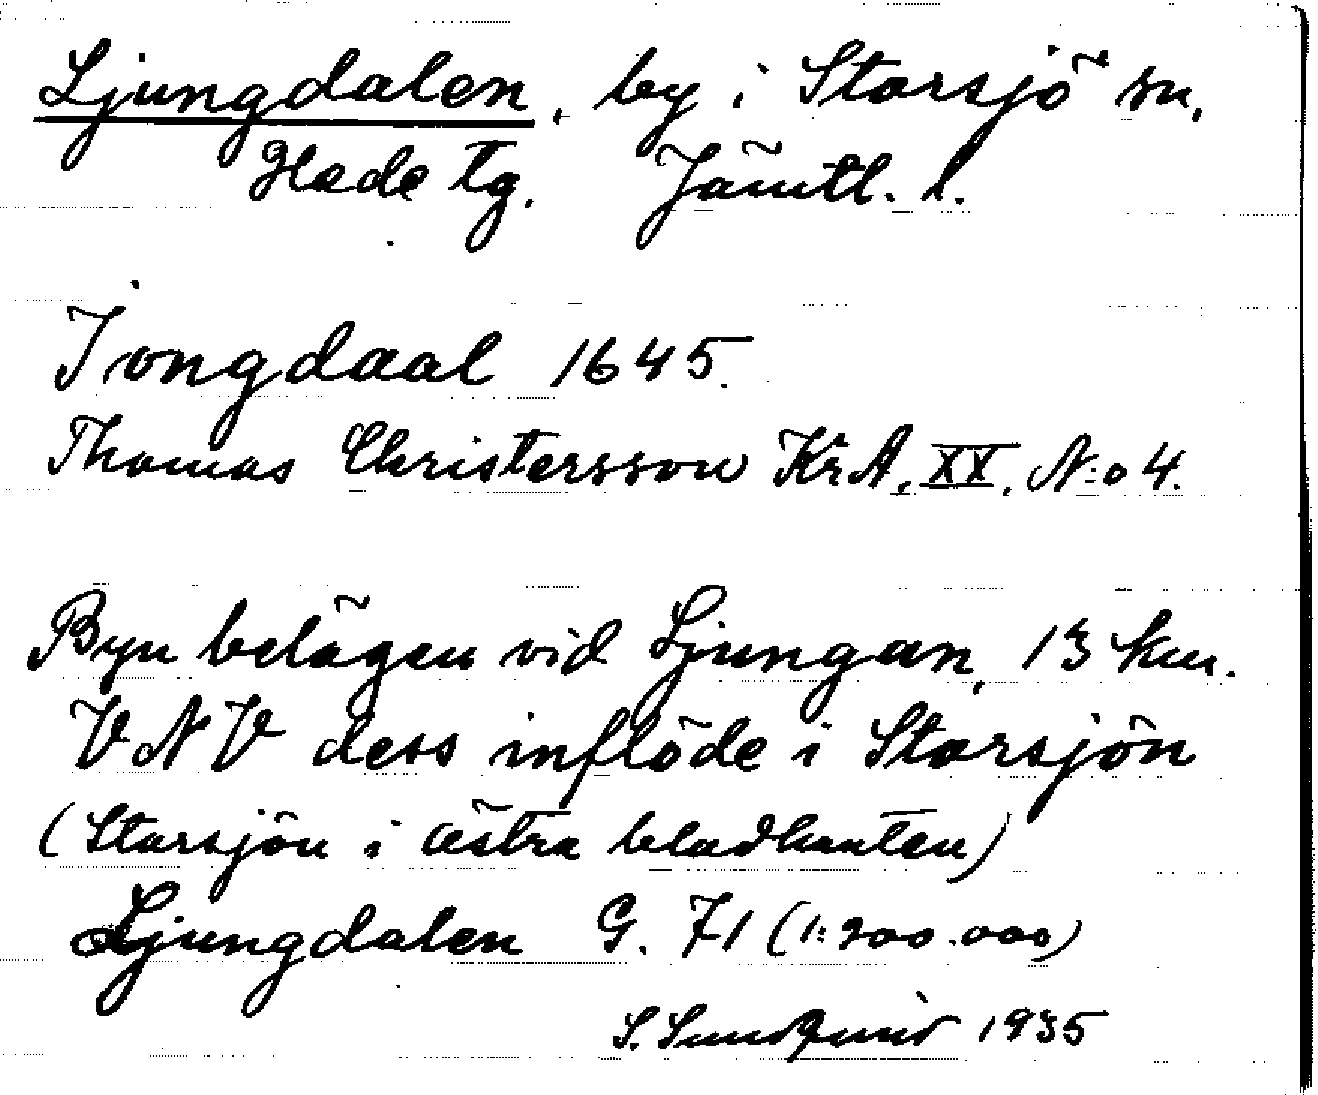 Ljungdalen, by i Storsjö sn,
Hede tg. Jämtl. l.
Jongdaal 1645.
Thomas Christersson KrA, XX, N:o 4.
Byn belägen vid Ljungan, 13 km.
VNV dess inflöde i Storsjön
(Storsjön i östra bladkanten)
Ljungdalen G. 71 (1:200.000)
S. Sundqvist 1935